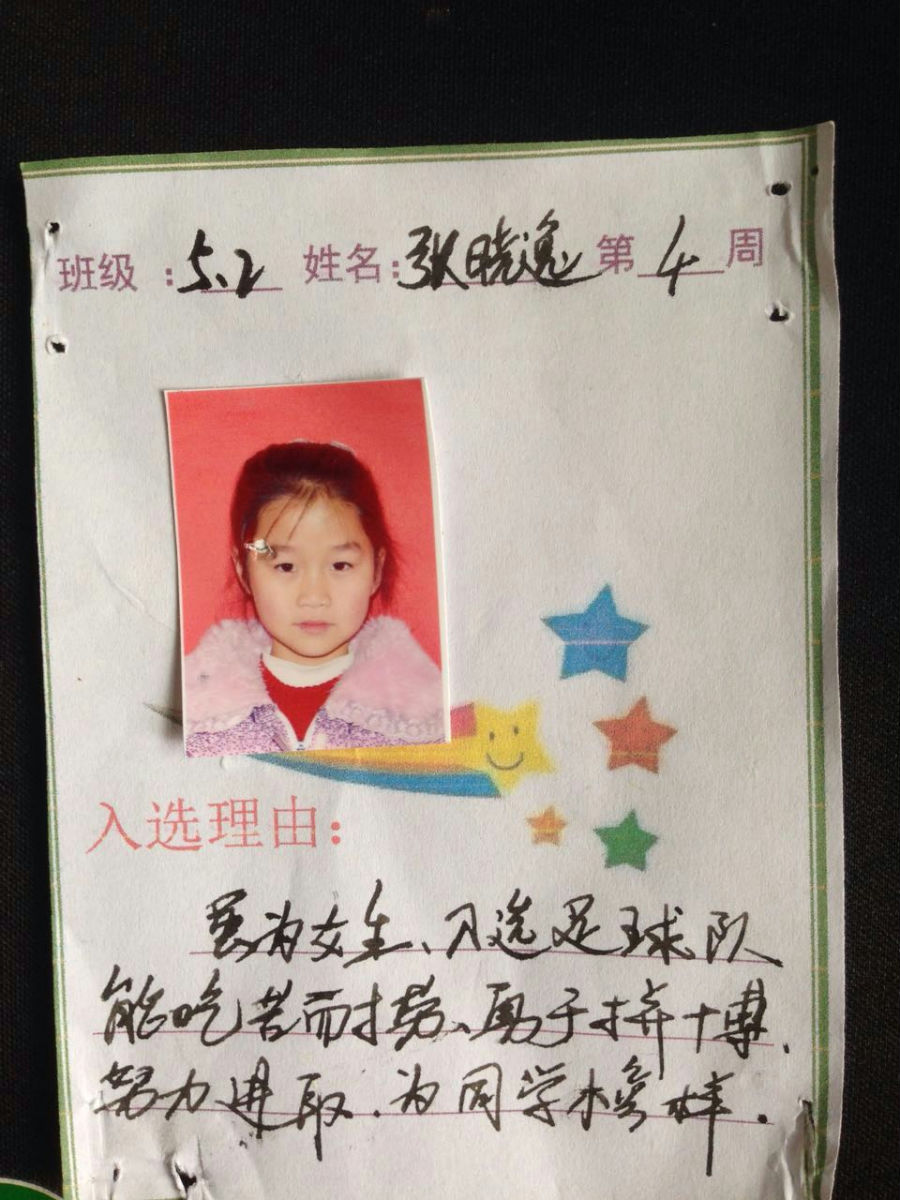 班级：5.2 姓名：张晓逸 第 4 周
入选理由：
虽为女生、入选足球队
能吃苦而扌劳、勇于拼十博.
努力进取.为同学榜样.